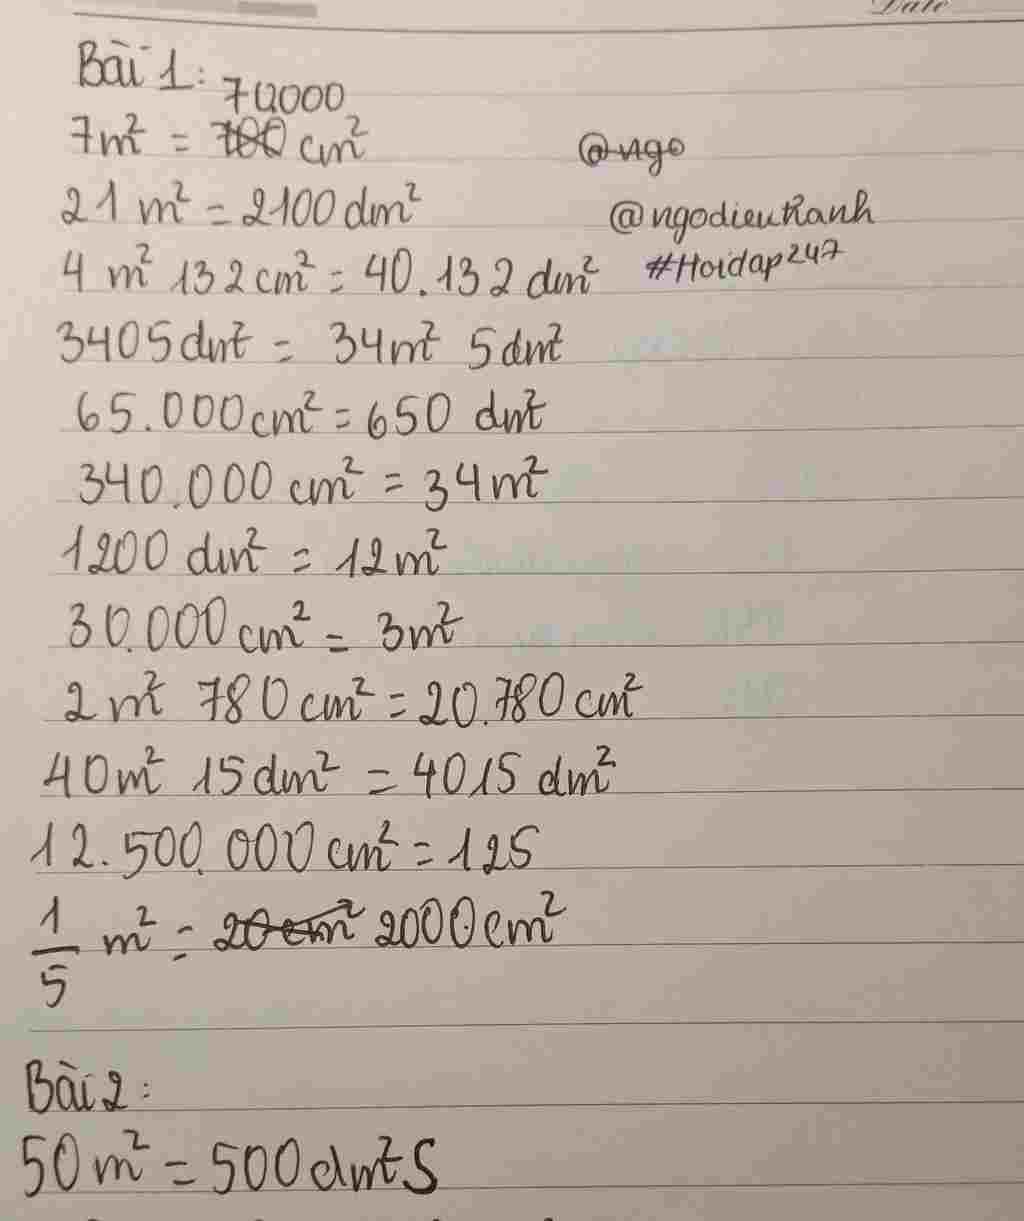 Date
Bài 1:
70000
7m² = 700 cm²
@ngo
21 m² = 2100 dm²
@ngodieukhanh
4 m² 132 cm² = 40.132 dm²
#Hoidap247
3405 dm² = 34m² 5dm²
65.000 cm² = 650 dm²
340.000 cm² = 34m²
1200 dm² = 12m²
30.000 cm² = 3m²
2 m² 780 cm² = 20.780 cm²
40m² 15 dm² = 4015 dm²
12.500.000 cm² = 125
1/5 m² = 20cm² 2000cm²
Bài 2:
50 m² = 500 dm² S